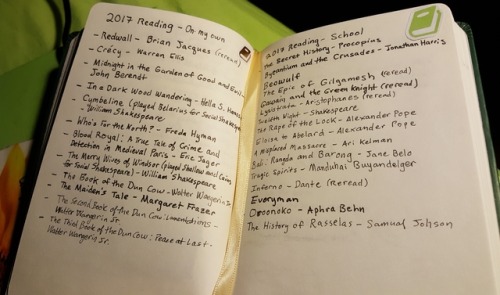 2017 Reading - On my own
- Redwall - Brian Jacques (reread)
- Crécy - Warren Ellis
- Midnight in the Garden of Good and Evil -
John Berendt
- In a Dark Wood Wandering - Hella S.
- Cymbeline (played Belarius for Social Shakespeare)
- William Shakespeare
- Who's For the North? - Freda Hyman
- Blood Royal: A True Tale of Crime and
Detection in Medieval Paris - Eric Jager
- The Merry Wives of Windsor (played Shallow and Caius
for Social Shakespeare) - William Shakespeare
- The Book of the Dun Cow - Walter Wangerin Jr.
- The Maiden's Tale - Margaret Frazer
- The Second Book of the Dun Cow: Lamentations -
Walter Wangerin Jr.
- The Third Book of the Dun Cow: Peace at Last -
Walter Wangerin Jr.
2017 Reading - School
The Secret History - Procopius
Byzantium and the Crusades - Jonathan Harris
Beowulf
The Epic of Gilgamesh (reread)
Gawain and the Green Knight (reread)
Lysistrata - Aristophanes (reread)
Twelfth Night - Shakespeare
The Rape of the Lock - Alexander Pope
Eloisa to Abelard - Alexander Pope
A Misplaced Massacre - Ari Kelman
Bali: Rangda and Barong - Jane Belo
Tragic Spirits - Manduhai Buyandelger
Inferno - Dante (reread)
Everyman
Oroonoko - Aphra Behn
The History of Rasselas - Samuel Johson